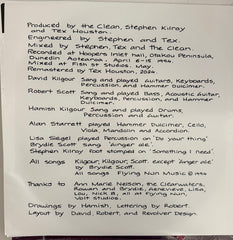 Produced by the Clean, Stephen Kilroy
and Tex Houston.
Engineered by Stephen and Tex.
Mixed by Stephen, Tex and the Clean.
Recorded at Hoopers Inlet hall, Otakou Peninsula,
Dunedin Aotearoa. April 6-15 1996
Mixed at Fish St Studios. May.
Remastered by Tex Houston, 2024.
David Kilgour Sang and played Guitars, Keyboards,
Percussion, and Hammer Dulcimer.
Robert Scott Sang and played Bass, Acoustic Guitar,
Keyboards, Percussion, and Hammer
Dulcimer.
Hamish Kilgour Sang and played Drums,
Percussion and Guitar.
Alan Starrett played Hammer Dulcimer, Cello,
Viola, Mandolin and Accordion.
Lisa Siegel played Percussion on "Do your thing"
Brydie Scott Sang 'Ainger ale'.
Stephen Kilroy foot stomped on 'Something I need'.
All songs Kilgour, Kilgour, Scott. except 'Ainger ale'
by Brydie Scott.
All songs Flying Nun Music © 1996
Thanks to Ann Marie Nelson, the Clearwaters,
Rowan and Brydie, Genevieve, Lisa,
Lou, Nick B, all at Flying Nun,
Volt Studios.
Drawings by Hamish, Lettering by Robert.
Layout by David, Robert, and Revolver Design.